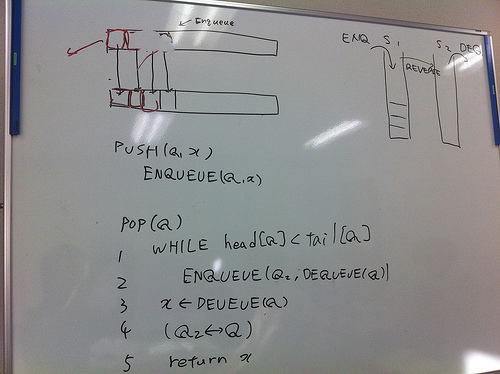 Enqueue
ENQ S1 S2 DEQ
REVERSE
PUSH(Q, x)
ENQUEUE(Q, x)
POP(Q)
1 WHILE head[Q] < tail[Q]
2 ENQUEUE(Q2, DEQUEUE(Q))
3 x ← DEUEUE(Q)
4 (Q2 ↔ Q)
5 return x